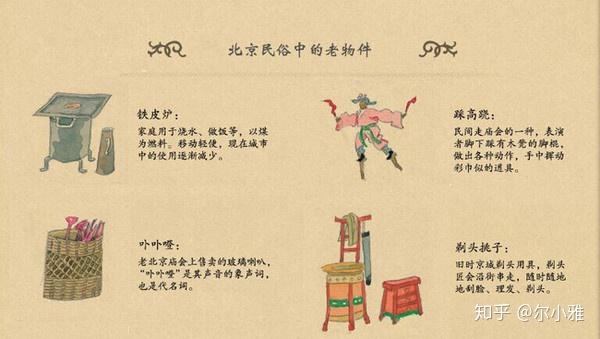 北京民俗中的老物件
铁皮炉：
家庭用于烧水、做饭等，以煤
为燃料。移动轻便，现在城市
中的使用逐渐减少。
踩高跷：
民间走庙会的一种，表演
者脚下踩有木凳的脚棍，
做出各种动作，手中挥动
彩巾似的道具。
卟卟噔：
老北京庙会上售卖的玻璃喇叭，
“卟卟噔”是其声音的象声词，
也是代名词。
剃头挑子：
旧时京城剃头用具，剃头
匠会沿街串走，随时随地
地刮脸、理发、剃头。
知乎 @尔小雅